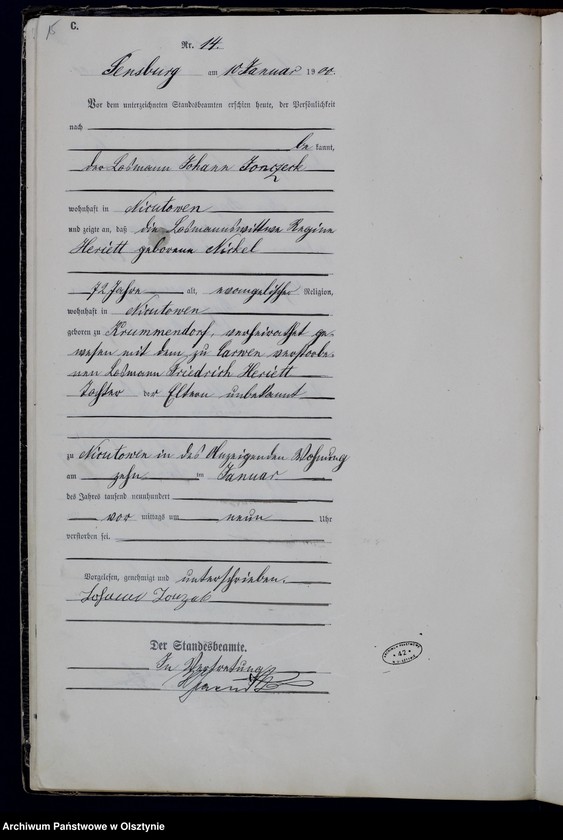 15
C.
Nr. 14.
Sensburg am 10 Januar 1900.
Vor dem unterzeichneten Standesbeamten erschien heute, der Persönlichkeit
nach
bekannt,
der Losmann Johann Jonczeck
wohnhaft in Nicutowen
und zeigte an, daß die Losmannswittwe Regine
Heriett geborene Nickel
72 Jahre alt, evangelischer Religion,
wohnhaft in Nicutowen
geboren zu Krummendorf, verheirathet ge-
wesen mit dem zu Carwen verstorbe-
nen Losmann Friedrich Heriett
Tochter der Eltern unbekannt
zu Nicutowen in des Anzeigenden Wohnung
am zehn ten Januar
des Jahres tausend neunhundert
vor mittags um neun Uhr
verstorben sei.
Vorgelesen, genehmigt und unterschrieben.
Johann
Der Standesbeamte.
In Vertretung
42
Archiwum Państwowe w Olsztynie